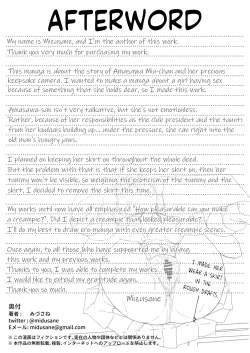 AFTERWORD
My name is Mizusane, and I'm the author of this work.
Thank you very much for purchasing my work.
This manga is about the story of Amasawa Miu-chan and her precious
keepsake camera. I wanted to make a manga about a girl having sex
because of something that she holds dear, so I made this work.
Amasawa-san isn't very talkative, but she's not emotionless.
Rather, because of her responsibilities as the club president and the taunt
from her kouhais building up... under the pressure, she ran right into the
old man's hungry jaws.
I planned on keeping her skirt on throughout the whole deed.
But the problem with that is that if she keeps her skirt on, then her
tummy won't be visible, so weighing the eroticism of the tummy and the
skirt, I decided to remove the skirt this time.
My works until now have all emphasized "How pleasurable can you make
a creampie?". Did I depict a creampie that looked pleasurable?
I'll do my best to draw ero-manga with even greater creampie scenes.
Once again, to all those who have supported me by buying
this work and my previous works.
Thanks to you, I was able to complete my works.
I would like to extend my gratitude again.
Thank you so much.
Mizusane
I MADE HER
WEAR A SKIRT
IN THE
ROUGH DRAFTS.
奥付
著者: みづさね
twitter : @midusane
Eメール : midusane@gmail.com
※この漫画はフィクションです。現在の人物や団体などとは関係ありません。
※この作品の無断転載、複製、インターネットへのアップロードを禁止します。